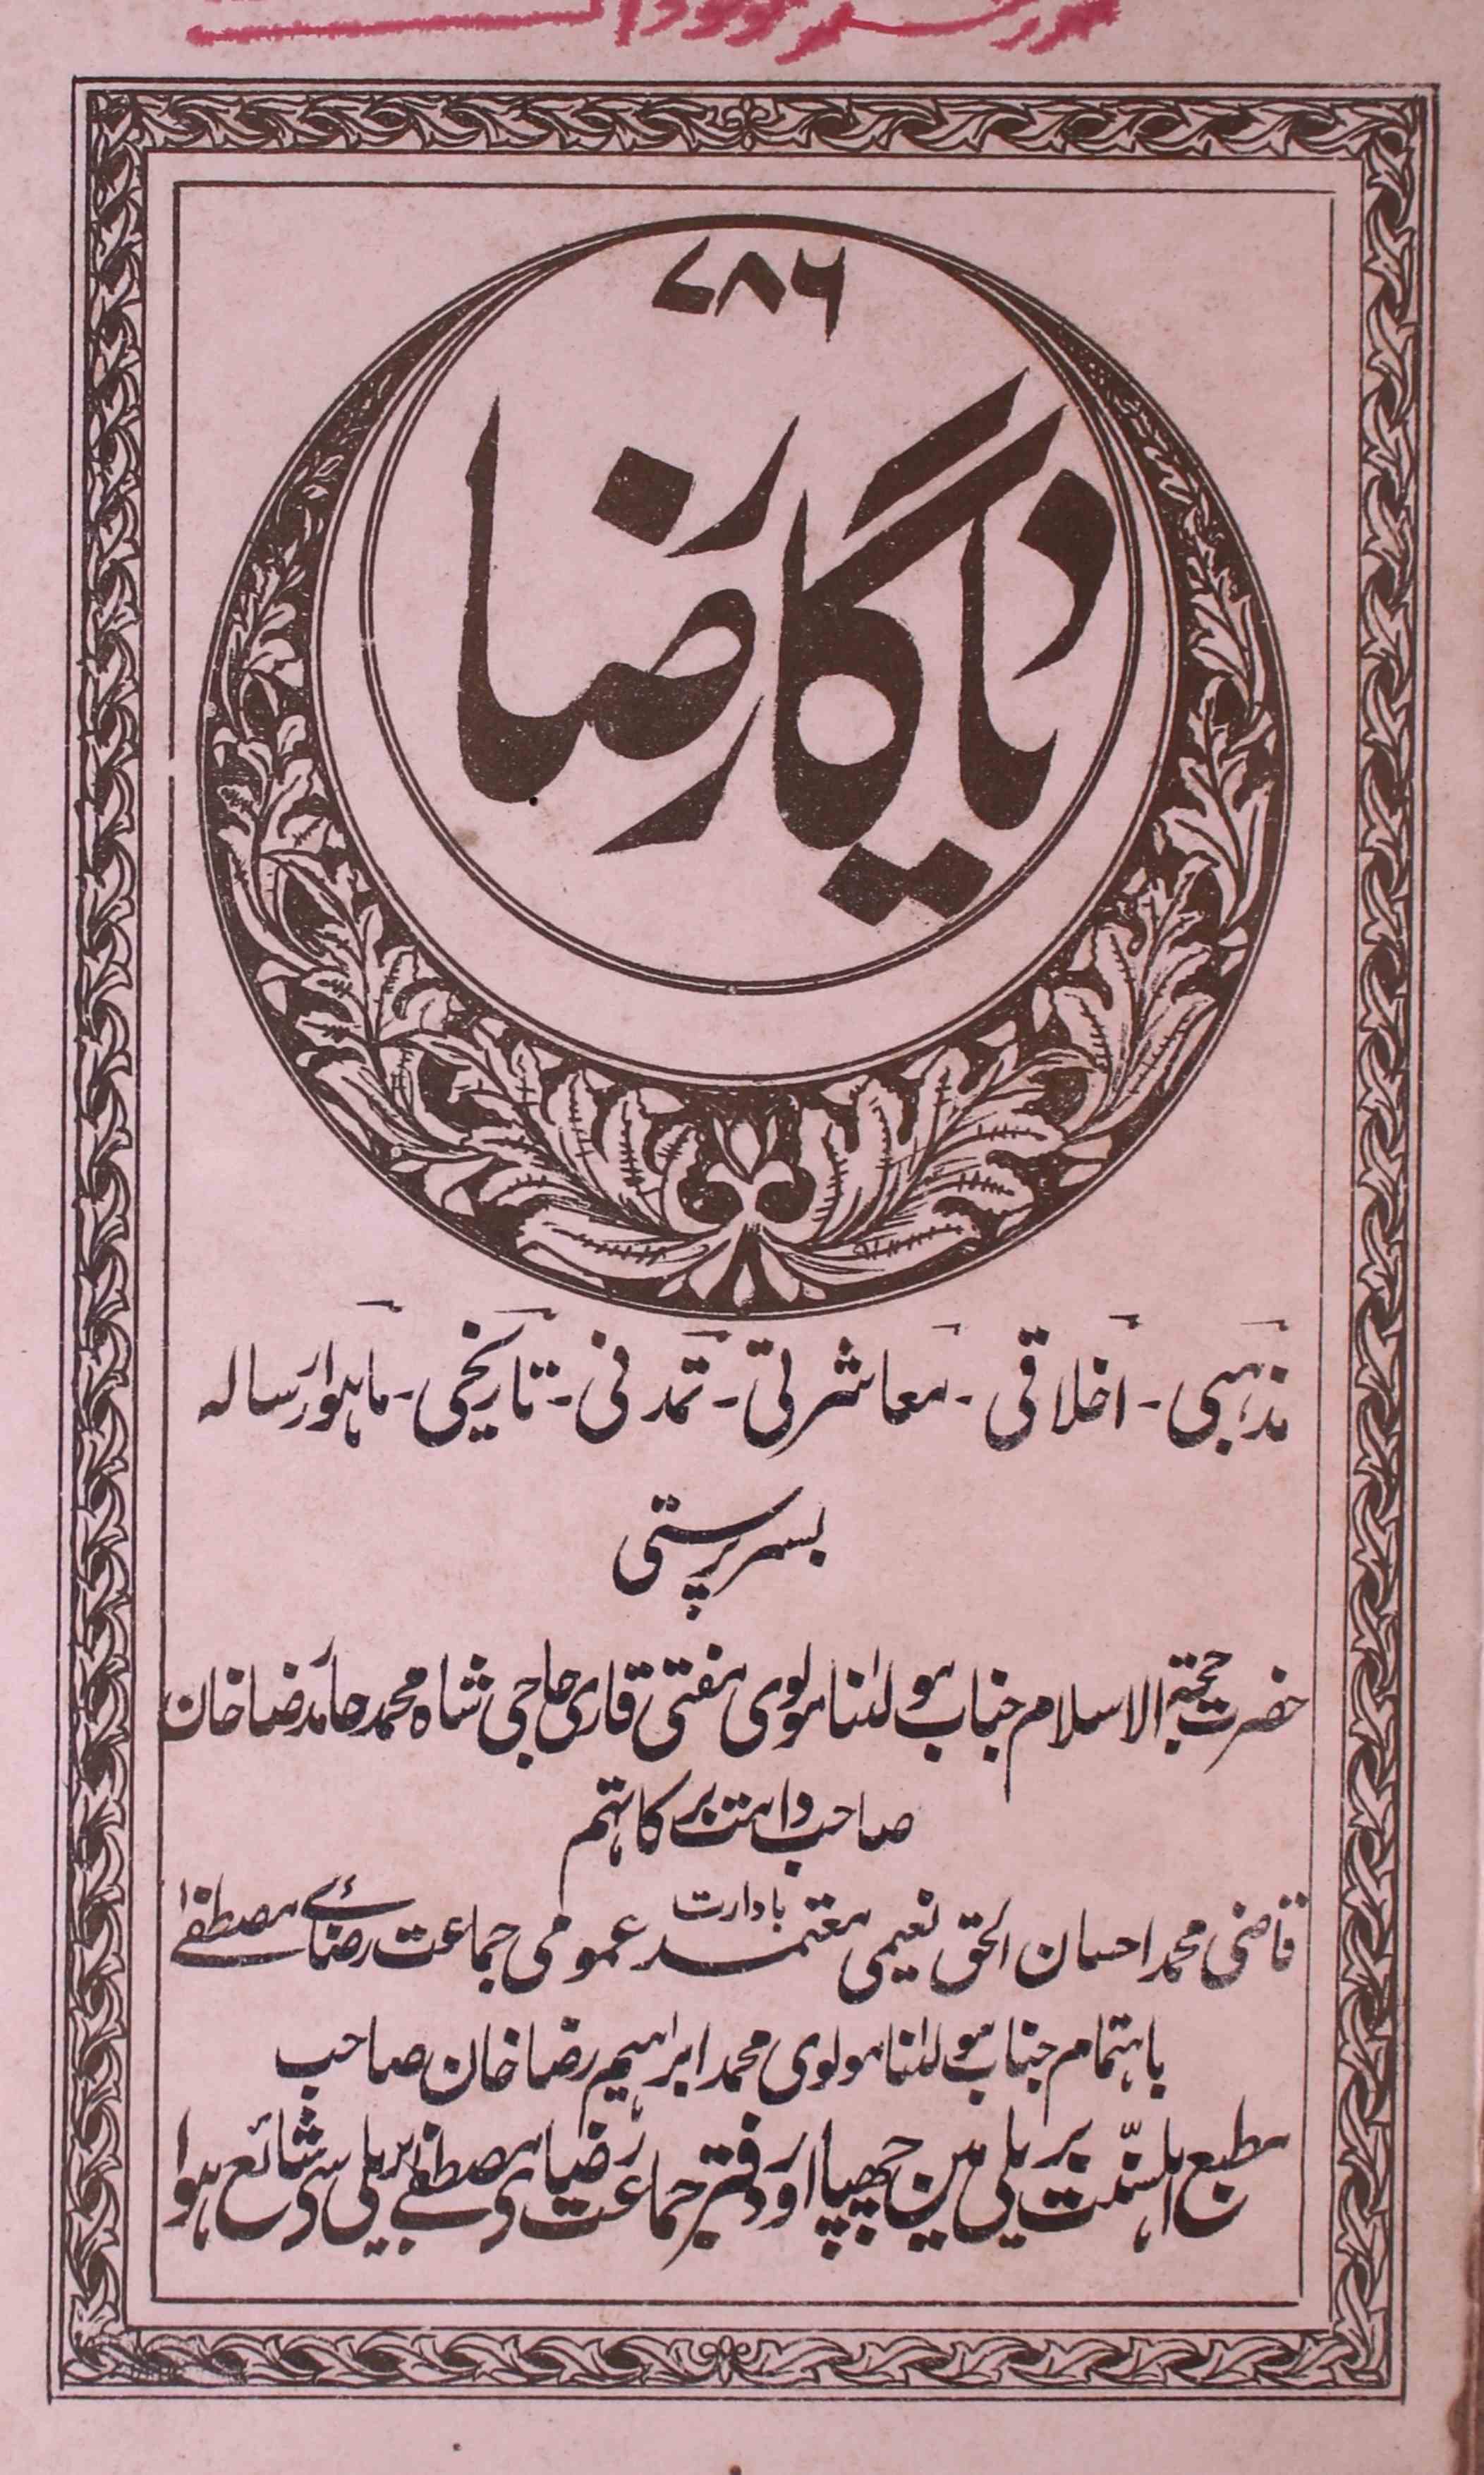 ۷۸۶
یادگار رضا
مذہبی - اخلاقی - معاشرتی - تمدنی - تاریخی - ماہوار رسالہ
بسرپرستی
حضرت حجۃ الاسلام جناب مولٰنا مولوی مفتی قاری حاجی شاہ محمد حامد رضا خان
صاحب دامت برکاتہم
بادارت
قاضی محمد احسان الحق نعیمی معتمد عمومی جماعت رضائے مصطفےٰ
باہتمام جناب مولٰنا مولوی محمد ابراہیم رضا خان صاحب
مطبع اہلسنّت بریلی مین چھپا اور دفتر جماعت رضای مصطفےٰ بریلی سی شائع ہوا